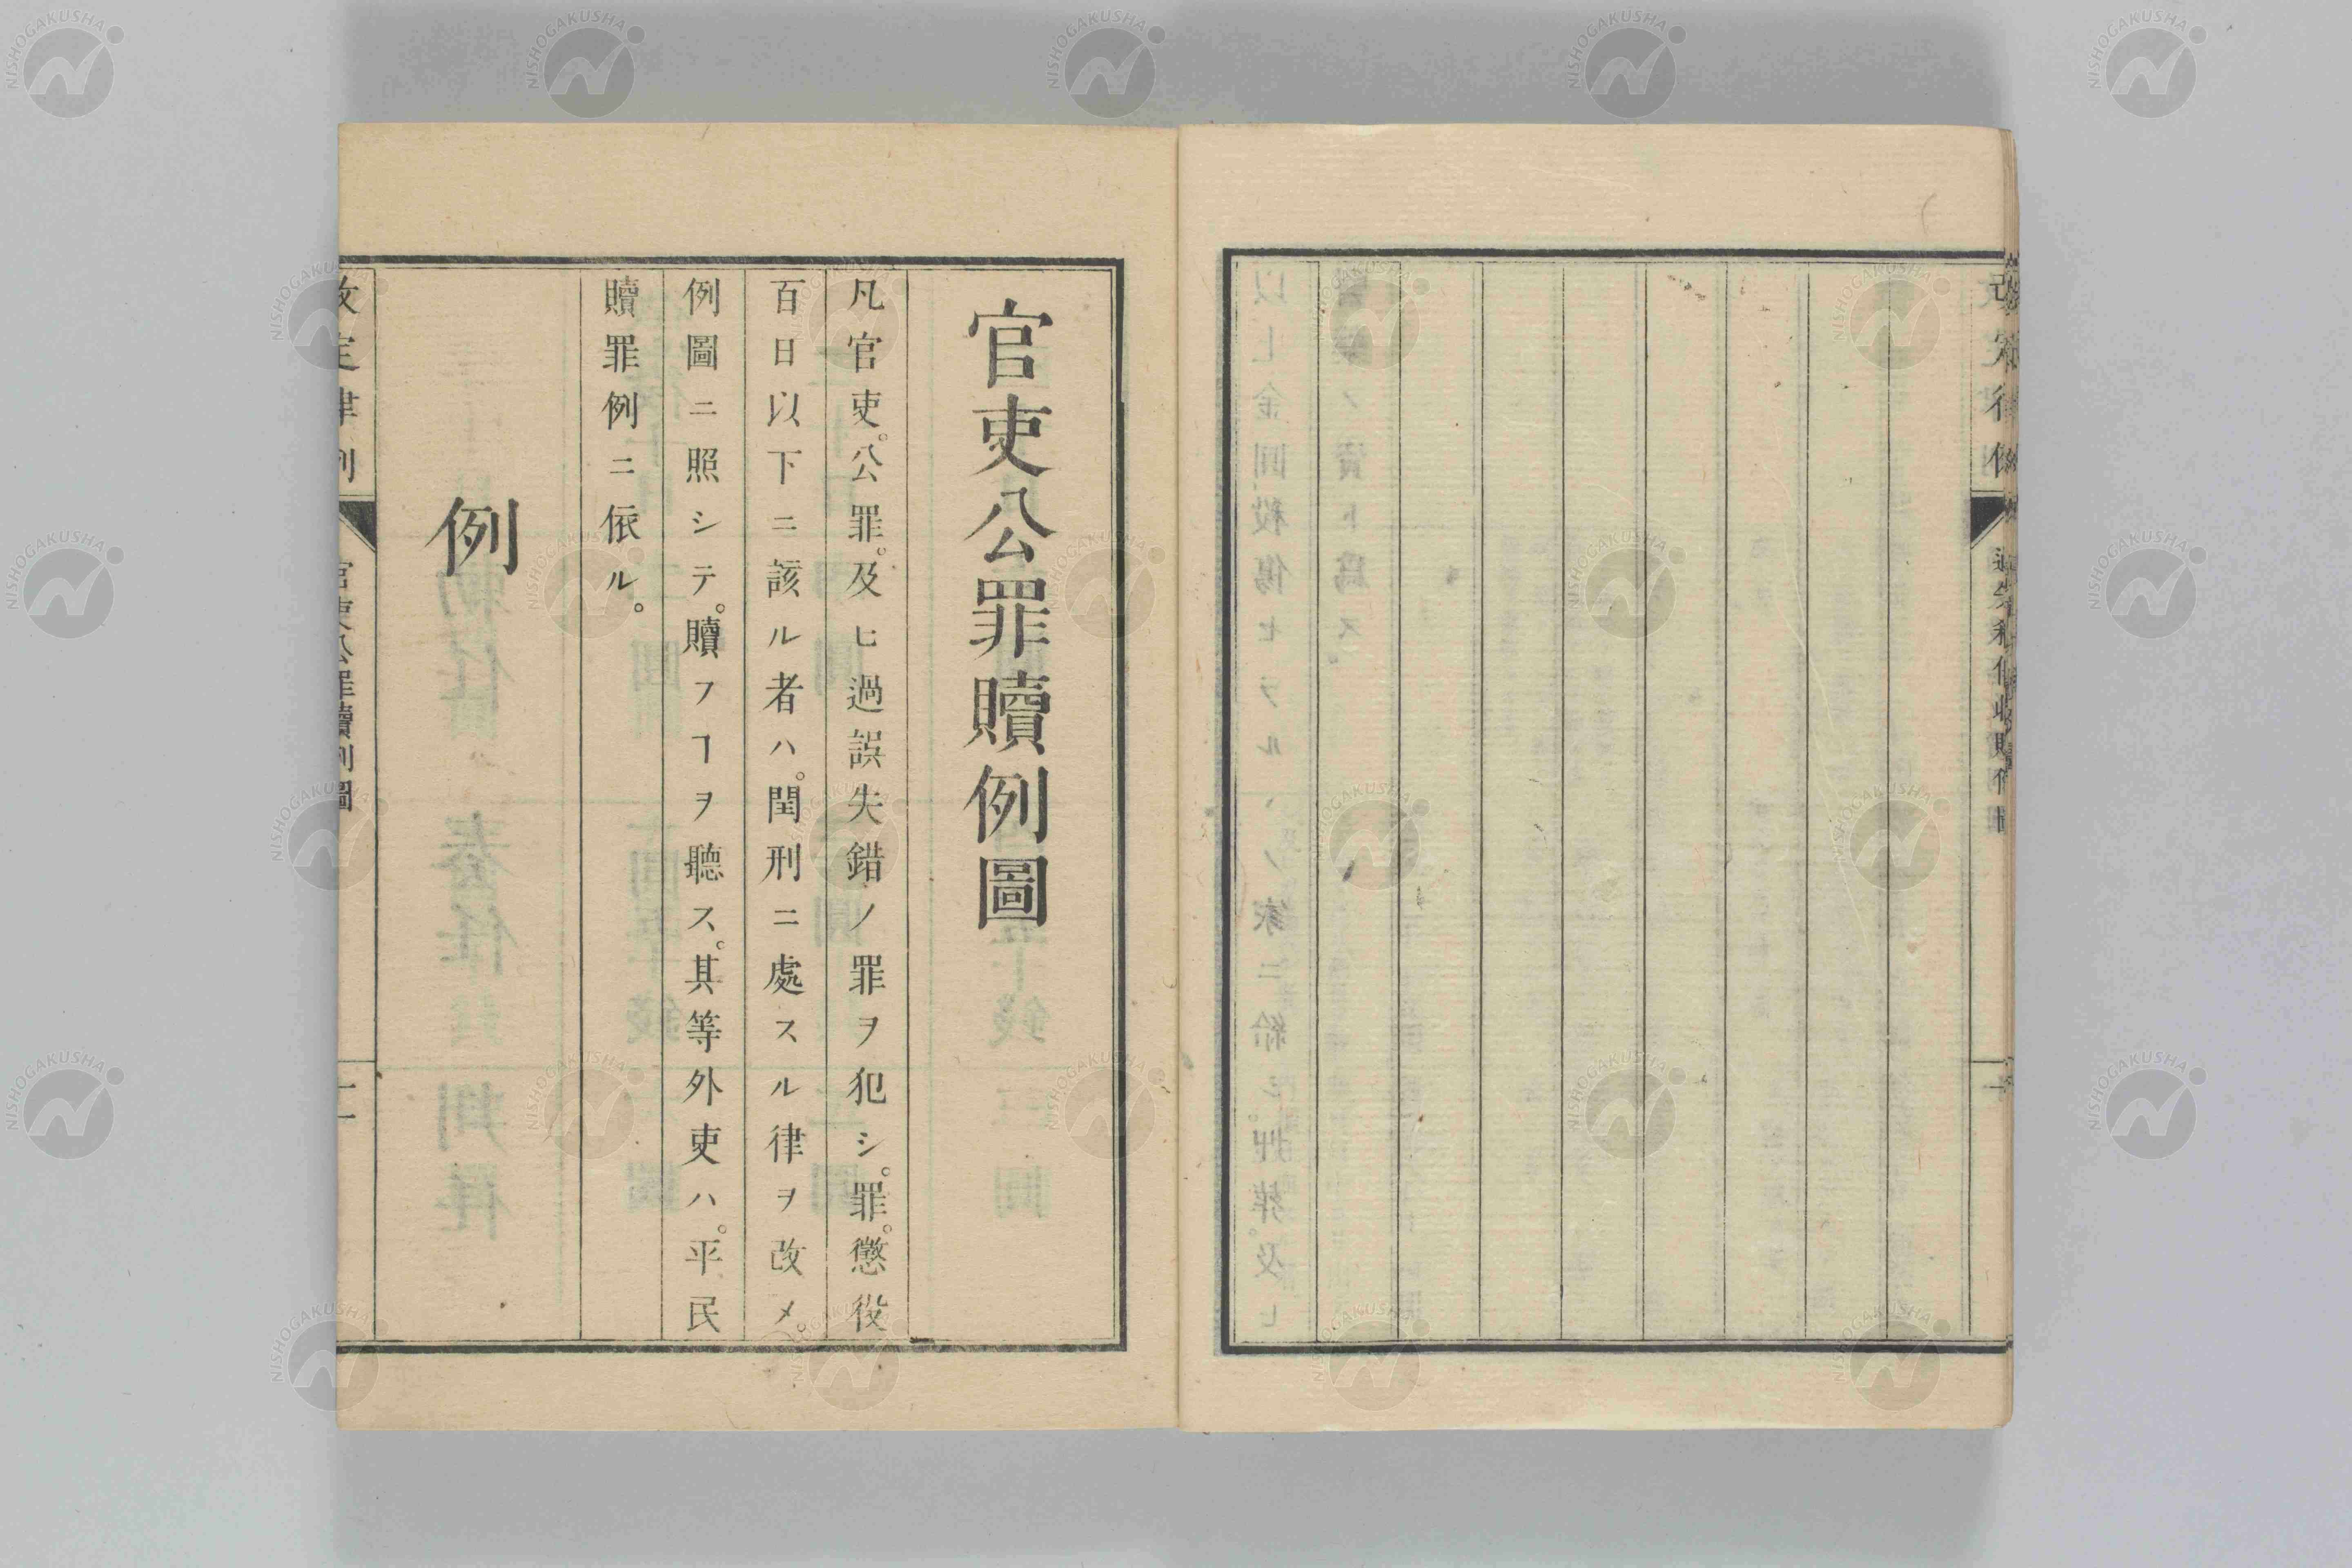 官吏公罪贖例圖
凡官吏。公罪。及ヒ過誤失錯ノ罪ヲ犯シ。罪。懲役
百日以下ニ該ル者ハ。閏刑ニ處スル律ヲ改メ。
例圖ニ照シテ。贖フヿヲ聽ス。其等外吏ハ。平民
贖罪例ニ依ル。
例
改定律例
官吏公罪贖例圖
NISHOGAKUSHA